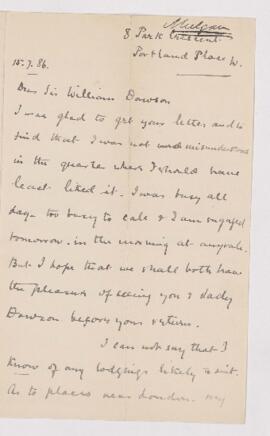 8 Park Crescent
Portland Place W.
15.7.86.
Dear Sir William Dawson
I was glad to get your letter and to
find that I was not misunderstood
in the quarter where I should have
least liked it. I was busy all
day - too busy to call & I am engaged
tomorrow. in the morning at anyrate.
But I hope that we shall both have
the pleasure of seeing you & Lady
Dawson before your return.
I can not say that I
know of any lodgings likely to suit.
As to places near London. my